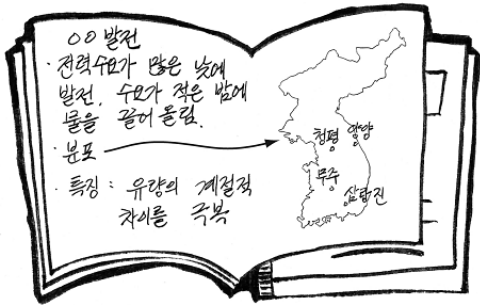 ○○ 발전
· 전력수요가 많은 낮에
발전, 수요가 적은 밤에
물을 끌어 올림.
· 분포
· 특징 : 유량의 계절적
차이를 극복
청평 양양
무주
삼랑진